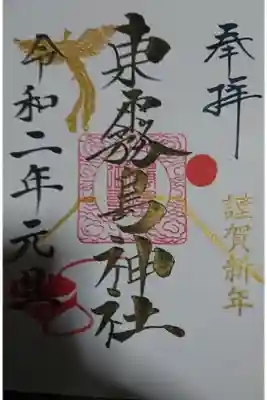 奉拝
謹賀新年
東霧島神社
令和二年元旦